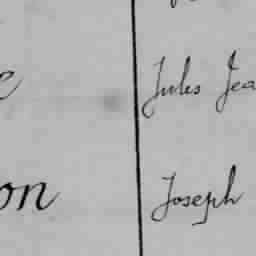 Jules Jea
on
Joseph